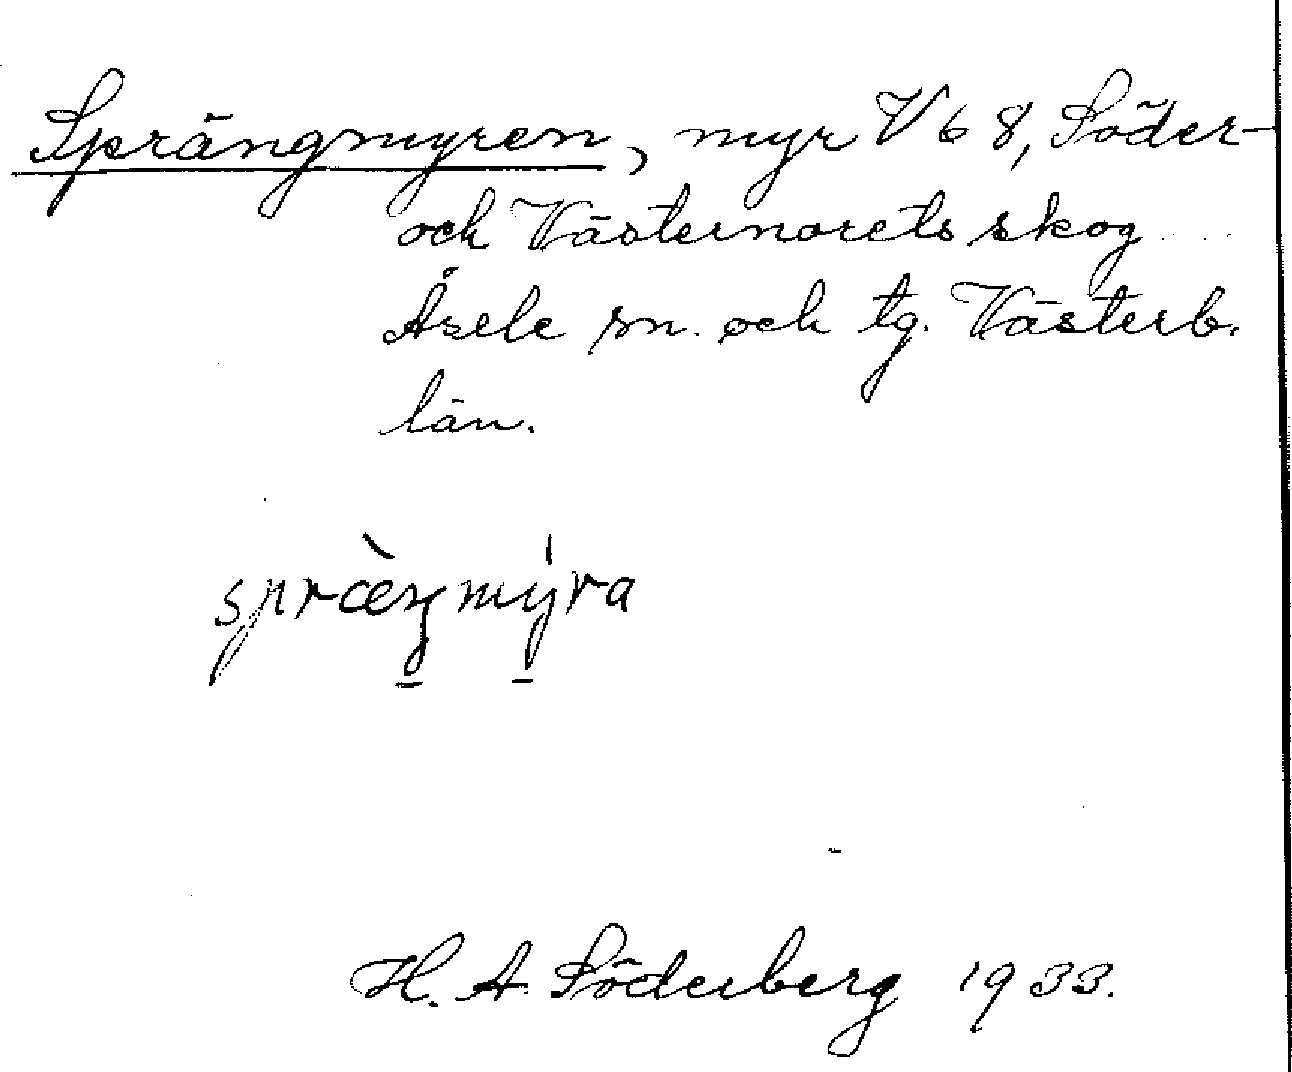 Sprängmyren, myr V 68, Söder-
och Västernorets skog
Åsele sn. och tg. Västerb.
län.
spræ̀ŋmýra
H. A. Söderberg 1933.